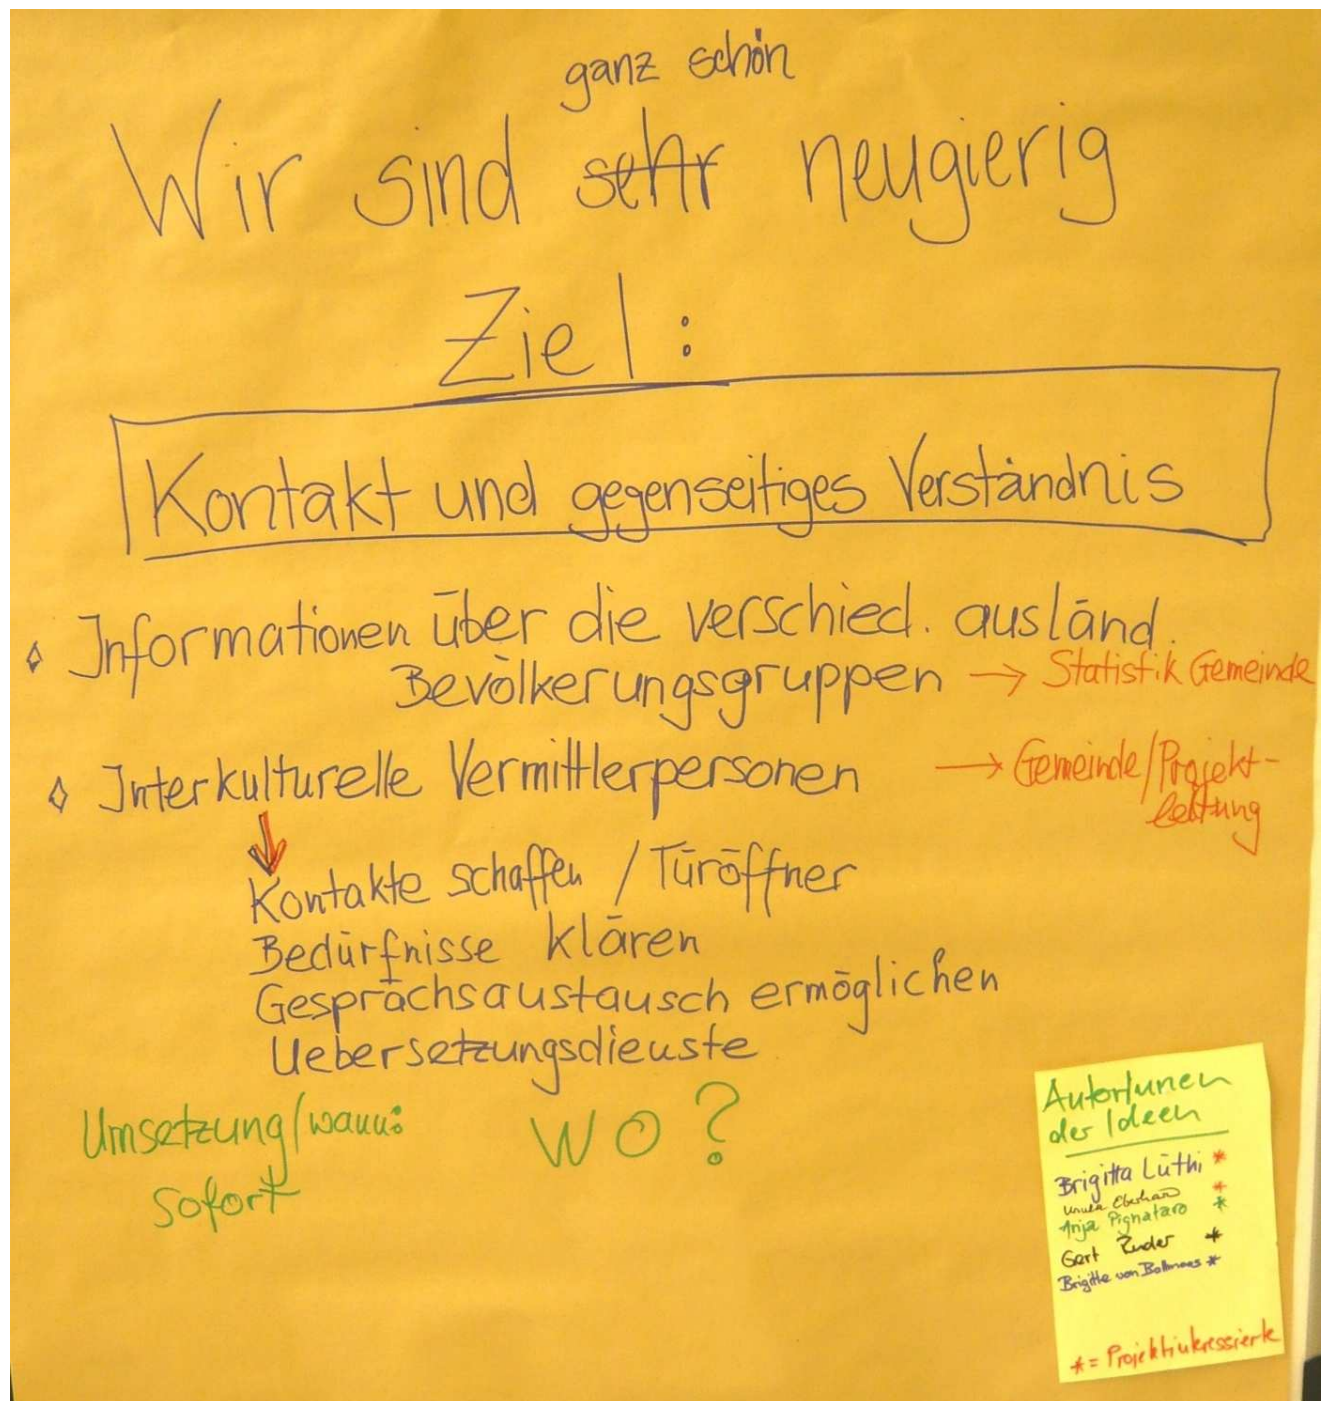 ganz schön
Wir sind sehr neugierig
Ziel:
Kontakt und gegenseitiges Verständnis
Informationen über die verschied. ausländ.
Bevölkerungsgruppen → Statistik Gemeinde
Interkulturelle Vermittlerpersonen → Gemeinde/Projekt-
leitung
Kontakte schaffen / Türöffner
Bedürfnisse klären
Gesprächsaustausch ermöglichen
Uebersetzungsdienste
Umsetzung/wann:
sofort
WO?
AutorInnen
der Ideen
Brigitta Lüthi *
*
Anja Pignataro *
Gert *
Brigitte von *
*= Projektinteressierte